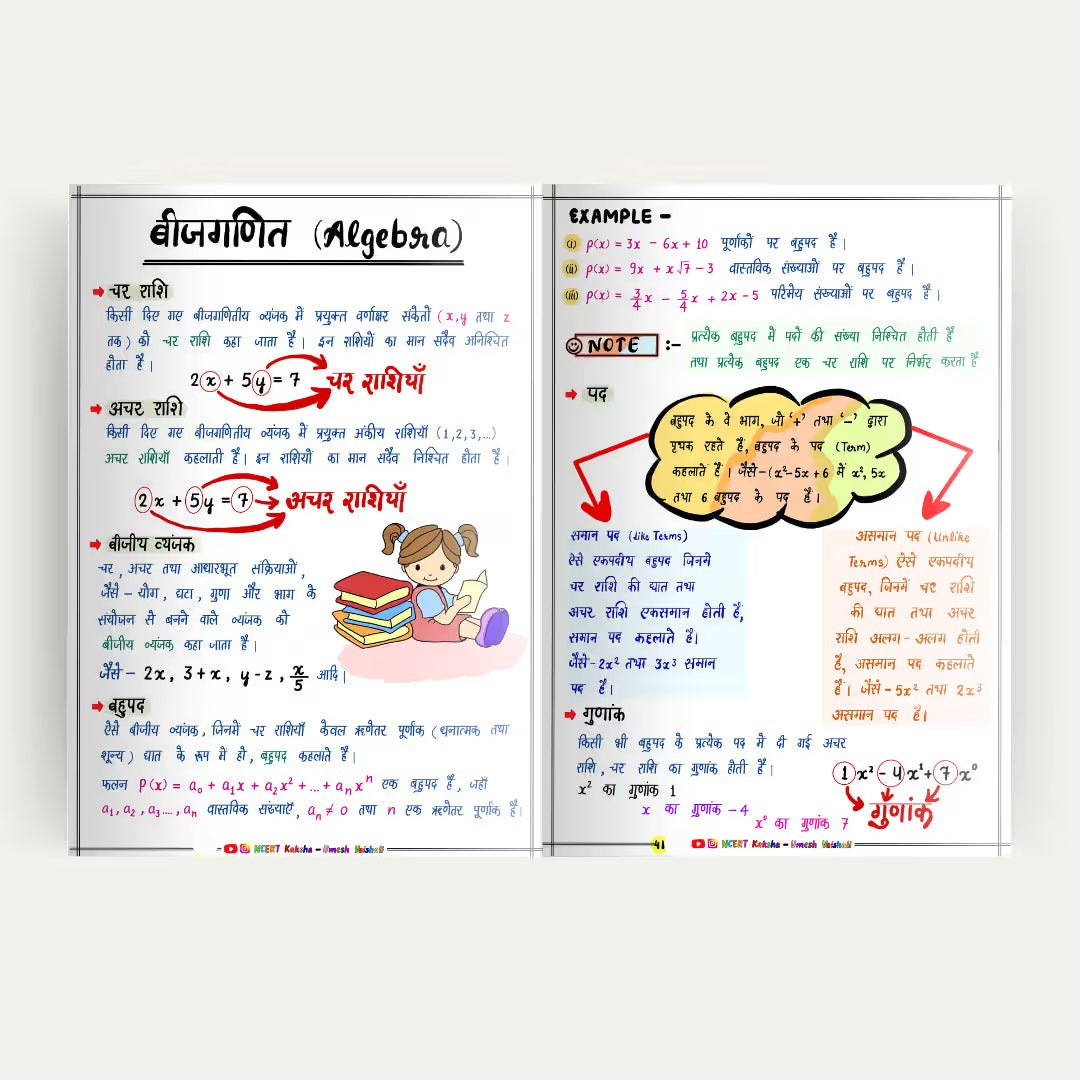 बीजगणित (Algebra)
चर राशि
किसी दिए गए बीजगणितीय व्यंजक में प्रयुक्त वर्णाक्षर संकेतों (x,y तथा z
तक) को चर राशि कहा जाता है। इन राशियों का मान सदैव अनिश्चित
होता है।
2x + 5y = 7 चर राशियाँ
अचर राशि
किसी दिए गए बीजगणितीय व्यंजक में प्रयुक्त अंकीय राशियाँ (1,2,3,...)
अचर राशियाँ कहलाती है। इन राशियों का मान सदैव निश्चित होता है।
2x + 5y = 7 अचर राशियाँ
बीजीय व्यंजक
चर, अचर तथा आधारभूत संक्रियाओं,
जैसे - योग, घटा, गुणा और भाग के
संयोजन से बनने वाले व्यंजक को
बीजीय व्यंजक कहा जाता है।
जैसे - 2x, 3+x, y-z, x/5 आदि।
बहुपद
ऐसे बीजीय व्यंजक, जिनमें चर राशियाँ केवल ऋणेतर पूर्णांक (धनात्मक तथा
शून्य) घात के रूप में हो, बहुपद कहलाते है।
फलन P(x) = a₀ + a₁x + a₂x² + ... + aₙxⁿ एक बहुपद है, जहाँ
a₁, a₂, a₃...., aₙ वास्तविक संख्याएँ, aₙ ≠ 0 तथा n एक ऋणेतर पूर्णांक है।
NCERT Kaksha - Umesh Vaishali
EXAMPLE -
(i) P(x) = 3x - 6x + 10 पूर्णांकों पर बहुपद है।
(ii) P(x) = 9x + x√7 - 3 वास्तविक संख्याओं पर बहुपद है।
(iii) P(x) = 3/4 x - 5/4 x + 2x - 5 परिमेय संख्याओं पर बहुपद है।
NOTE :- प्रत्येक बहुपद में पदों की संख्या निश्चित होती है
तथा प्रत्येक बहुपद एक चर राशि पर निर्भर करता है
पद
बहुपद के वे भाग, जो '+' तथा '-' द्वारा
पृथक रहते हैं, बहुपद के पद (Term)
कहलाते हैं। जैसे-(x²-5x+6 में x², 5x
तथा 6 बहुपद के पद है।
समान पद (Like Terms)
ऐसे एकपदीय बहुपद जिनमें
चर राशि की घात तथा
अचर राशि एकसमान होती हैं,
समान पद कहलाते है।
जैसे-2x² तथा 3x³ समान
पद है।
असमान पद (Unlike
Terms) ऐसे एकपदीय
बहुपद, जिनमें चर राशि
की घात तथा अचर
राशि अलग-अलग होती
है, असमान पद कहलाते
है। जैसे-5x² तथा 2x³
असमान पद है।
गुणांक
किसी भी बहुपद के प्रत्येक पद में दी गई अचर
राशि, चर राशि का गुणांक होती है।
x² का गुणांक 1
x का गुणांक -4
x⁰ का गुणांक 7
1x² - 4x¹ + 7x⁰
गुँणांक
41
NCERT Kaksha - Umesh Vaishali